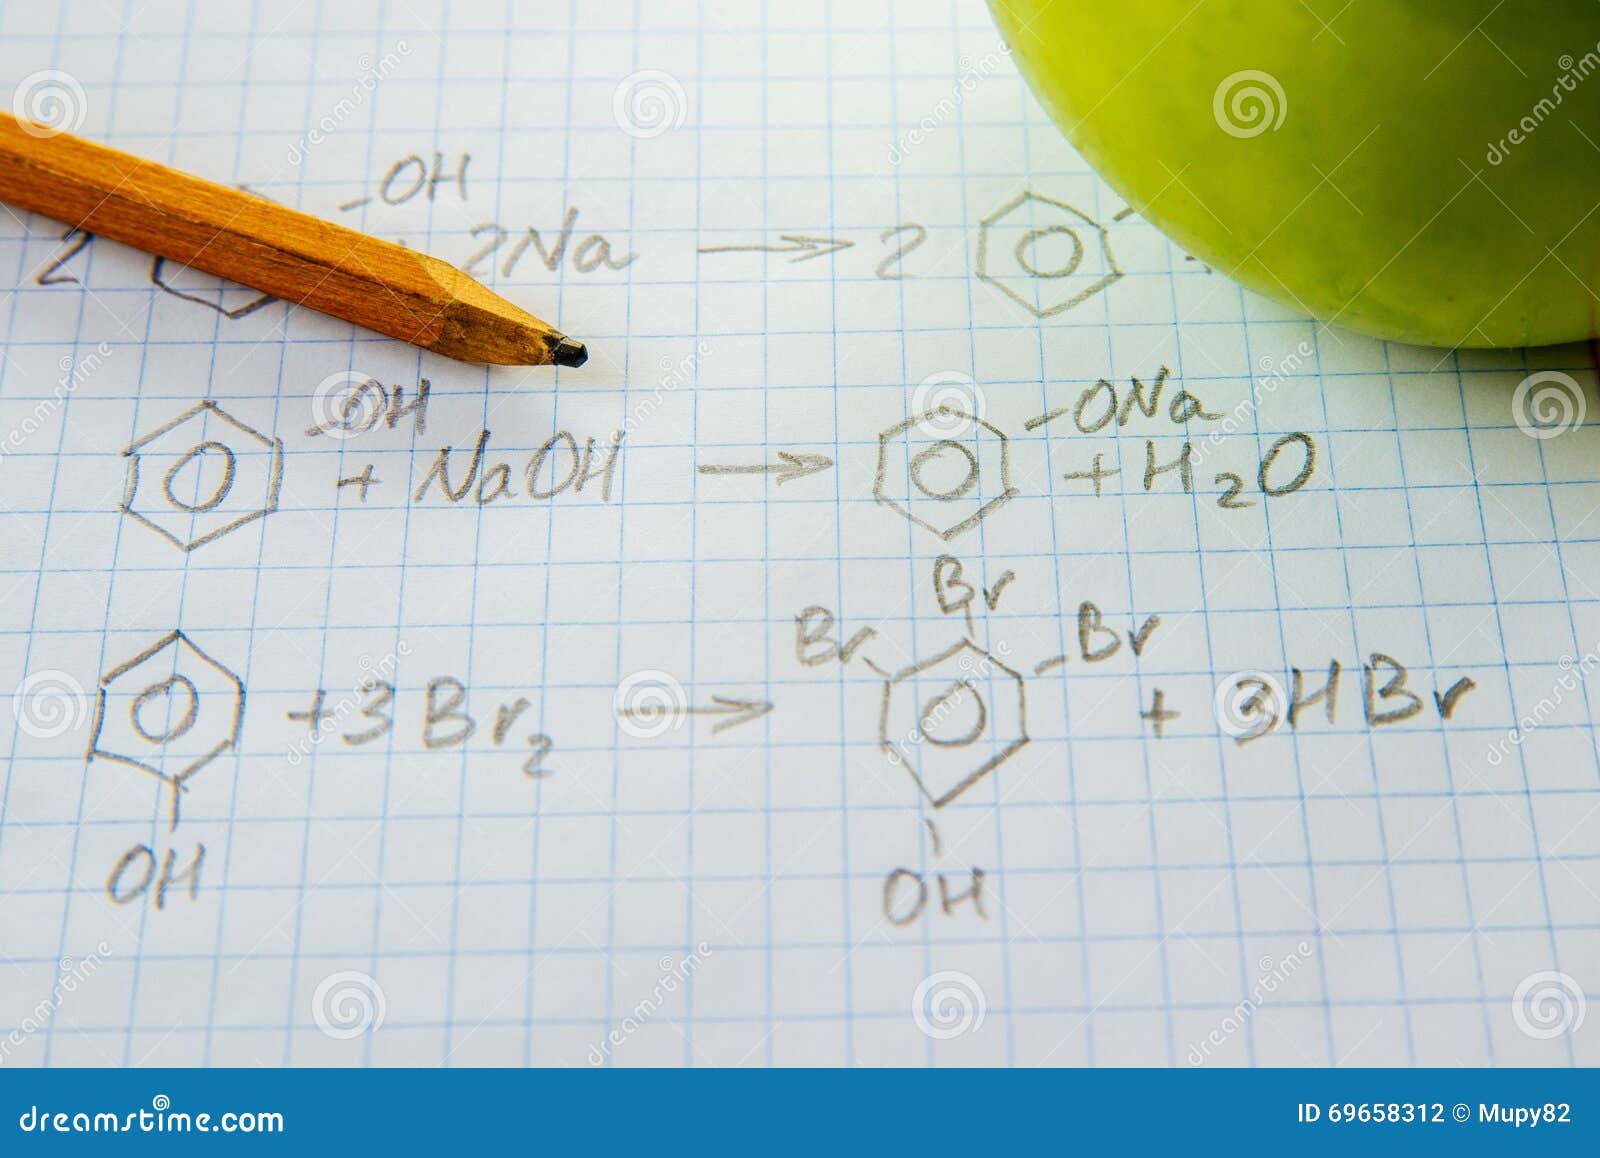 2 -OH 2Na → 2
-OH + NaOH → -ONa + H2O
Br
Br -Br
+3Br2 → + 3HBr
OH OH
dreamstime.com ID 69658312 © Mupy82